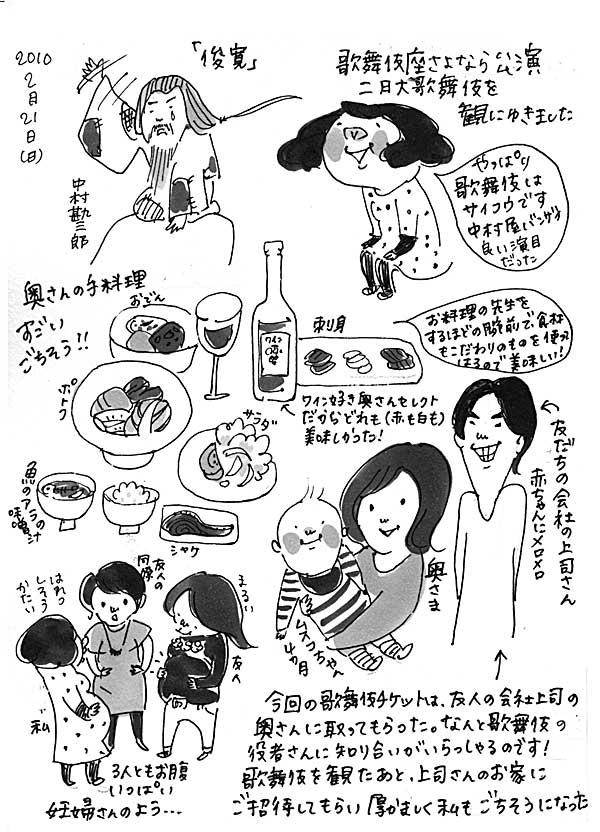 2010
2月21日(日)
「俊寛」
中村勘三郎
歌舞伎座さよなら公演
二月大歌舞伎を
観にゆきました
やっぱり
歌舞伎は
サイコウです
中村屋バンザイ
良い演目
だった
奥さんの手料理
すごい
ごちそう!!
おでん
ポトフ
サラダ
刺身
ワイン
魚のアラの汁
味噌
シャケ
お料理の先生を
するほどの腕前で食材
もこだわりのものを使って
はるので美味しい!
ワイン好き奥さんセレクト
だからどれも(赤も白も)
美味しかった!
友だちの会社の上司さん
赤ちゃんにメロメロ
奥さま
ムスコちゃん
4カ月
はれつ
しそう
かたい
私
友人の
同僚
まるい
友人
3人ともお腹
いっぱい
妊婦さんのよう…
今回の歌舞伎チケットは、友人の会社上司の
奥さんに取ってもらった。なんと歌舞伎の
役者さんに知り合いがいらっしゃるのです!
歌舞伎を観たあと、上司さんのお家に
ご招待してもらい厚かましく私もごちそうになった